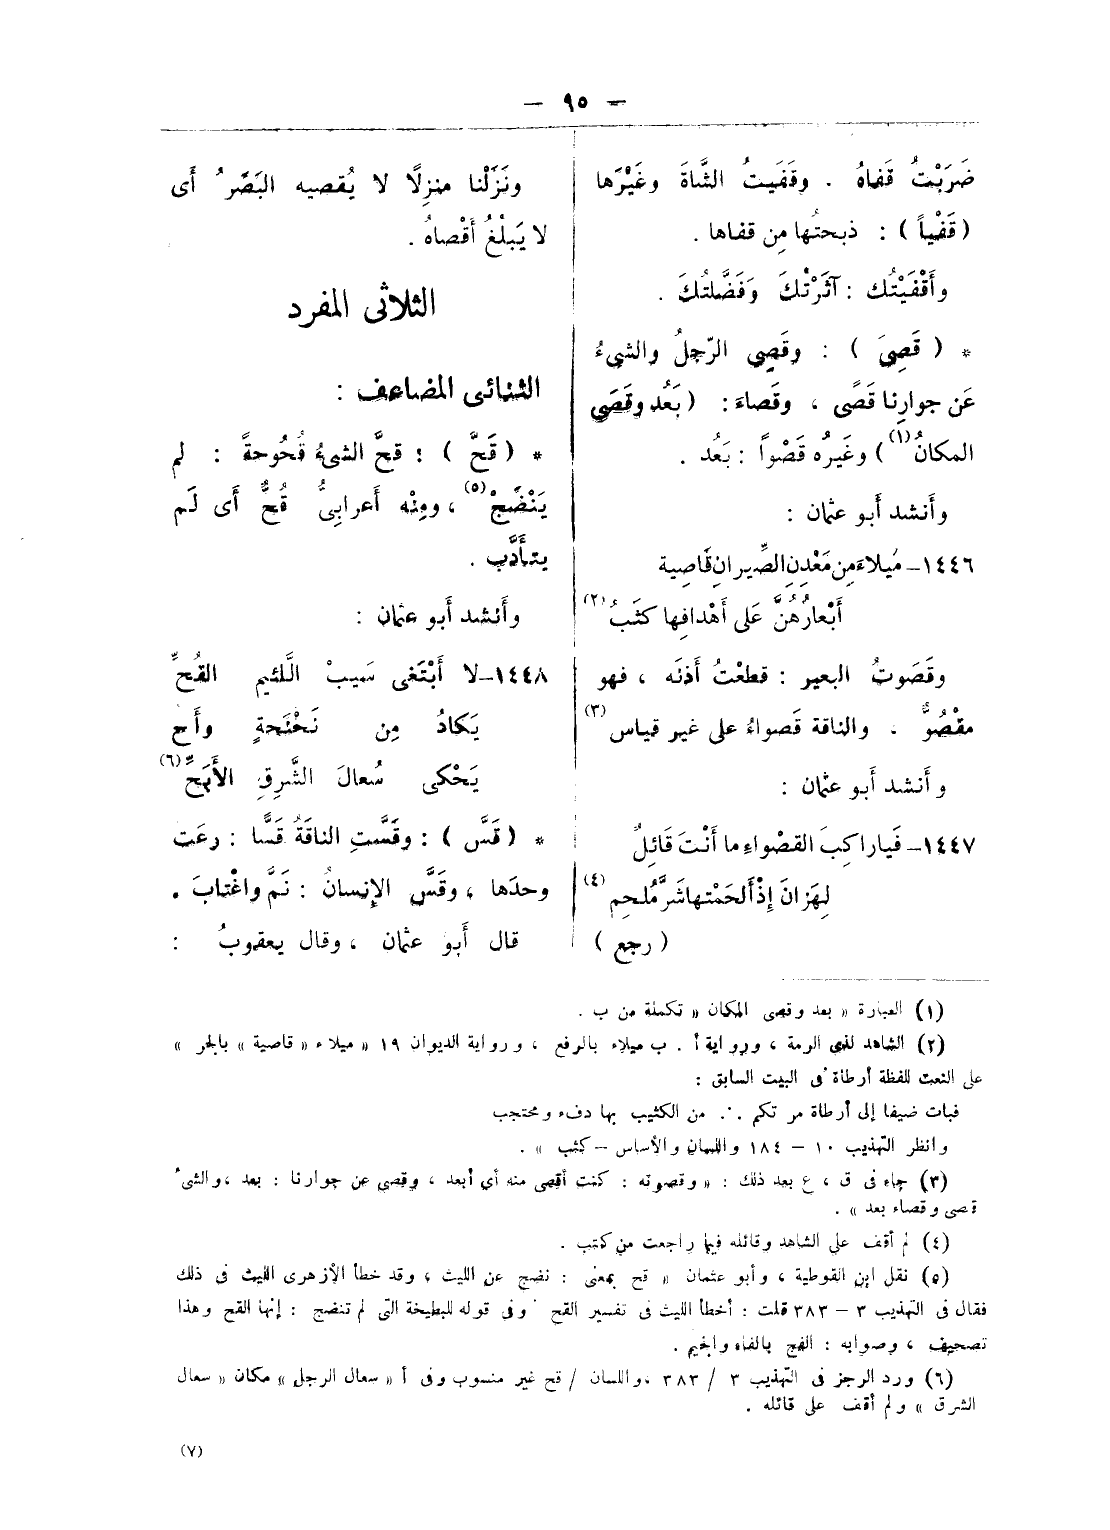 — ٩٥ —
ضَرَبْتُ قَفاهُ . وقَفَيتُ الشَّاةَ وغَيْرَها
( قَفْياً ) : ذبحتُها مِن قفاها .
وأَقْفَيْتُك : آثَرْتُكَ وَفَضَّلتُكَ .
* ( قَصِىَ ) : وقَصِى الرّجلُ والشىءُ
عَن جوارِنا قَصًى ، وقَصاءَ : ( بَعُد وقَصَى
المكانُ (١) ) وغَيرُه قَصْواً : بَعُد .
وأنشد أَبو عثمان :
١٤٤٦ – مَيلاءَ مِن مَعْدِنِ الصِّيرانِ قَاصِية
أَبْعارُهُنَّ عَلى أَهْدافِها كثَبُ (٢)
وقَصَوتُ البعير : قطعْتُ أذنَه ، فهو
مقْصُوٌّ . والناقة قَصواءُ على غير قياس (٣)
وأَنشد أَبو عثمان :
١٤٤٧ – فَياراكِبَ القصْواءِ ما أَنْتَ قَائِلٌ
لِهِزانَ إِذْ أَلحَمْتها شَرَّ مُلحِم (٤)
( رجع )
ونَزَلْنا منزِلًا لا يُقصيه البَصَرُ أَى
لا يَبلُغُ أَقْصاهُ .
الثلاثى المفرد
الثنائى المضاعف :
* ( قَحَّ ) : قحَّ الشىءُ قُحُوحةً : لم
يَنْضَجْ (٥) ، ومِنْه أَعرابِىٌّ قُحٌّ أَى لَم
يتأَدَّب .
وأَنشد أَبو عثمان :
١٤٤٨ – لا أَبْتَغى سَيبَ الَّلئيم القُحِّ
يَكادُ مِن نَحْنَحةٍ وأَح
يَحْكى سُعالَ الشَّرِقِ الأَبَحِّ (٦)
* ( قَسَّ ) : وقَسَّتِ الناقَةُ قَسًّا : رعَت
وحدَها ، وقَسَّ الإِنسانُ : نَمَّ واغْتابَ .
قال أَبو عثمان ، وقال يعقوبُ :
(١) العبارة « بعد وقصى المكان » تكملة من ب .
(٢) الشاهد لذى الرمة ، ورواية أ . ب ميلاء بالرفع ، ورواية الديوان ١٩ « ميلاء « قاصية » بالجر »
على النعت للفظة أرطاة فى البيت السابق :
فبات ضيفا إلى أرطاة مرتكم .٠. من الكثيب بها دفء ومحتجب
وانظر التهذيب ١٠ – ١٨٤ واللسان والأساس – كثب » .
(٣) جاء فى ق ، ع بعد ذلك : « وقصوته : كنت أقصى منه أي أبعد ، وقصى عن جوارنا : بعد ، والشىُ
قصى وقصاء بعد » .
(٤) لم أقف على الشاهد وقائله فيما راجعت من كتب .
(٥) نقل ابن القوطية ، وأبو عثمان « قح بمعنى : نضج عن الليث ، وقد خطأ الأزهرى الليث فى ذلك
فقال فى التهذيب ٣ – ٣٨٣ قلت : أخطأ الليث فى تفسير القح وفى قوله للبطيخة التى لم تنضج : إنها القح وهذا
تصحيف ، وصوابه : الفج بالفاء والجيم .
(٦) ورد الرجز فى التهذيب ٣ / ٣٨٣ ، واللسان / قح غير منسوب وفى أ « سعال الرجل » مكان « سعال
الشرق » ولم أقف على قائله .
(٧)